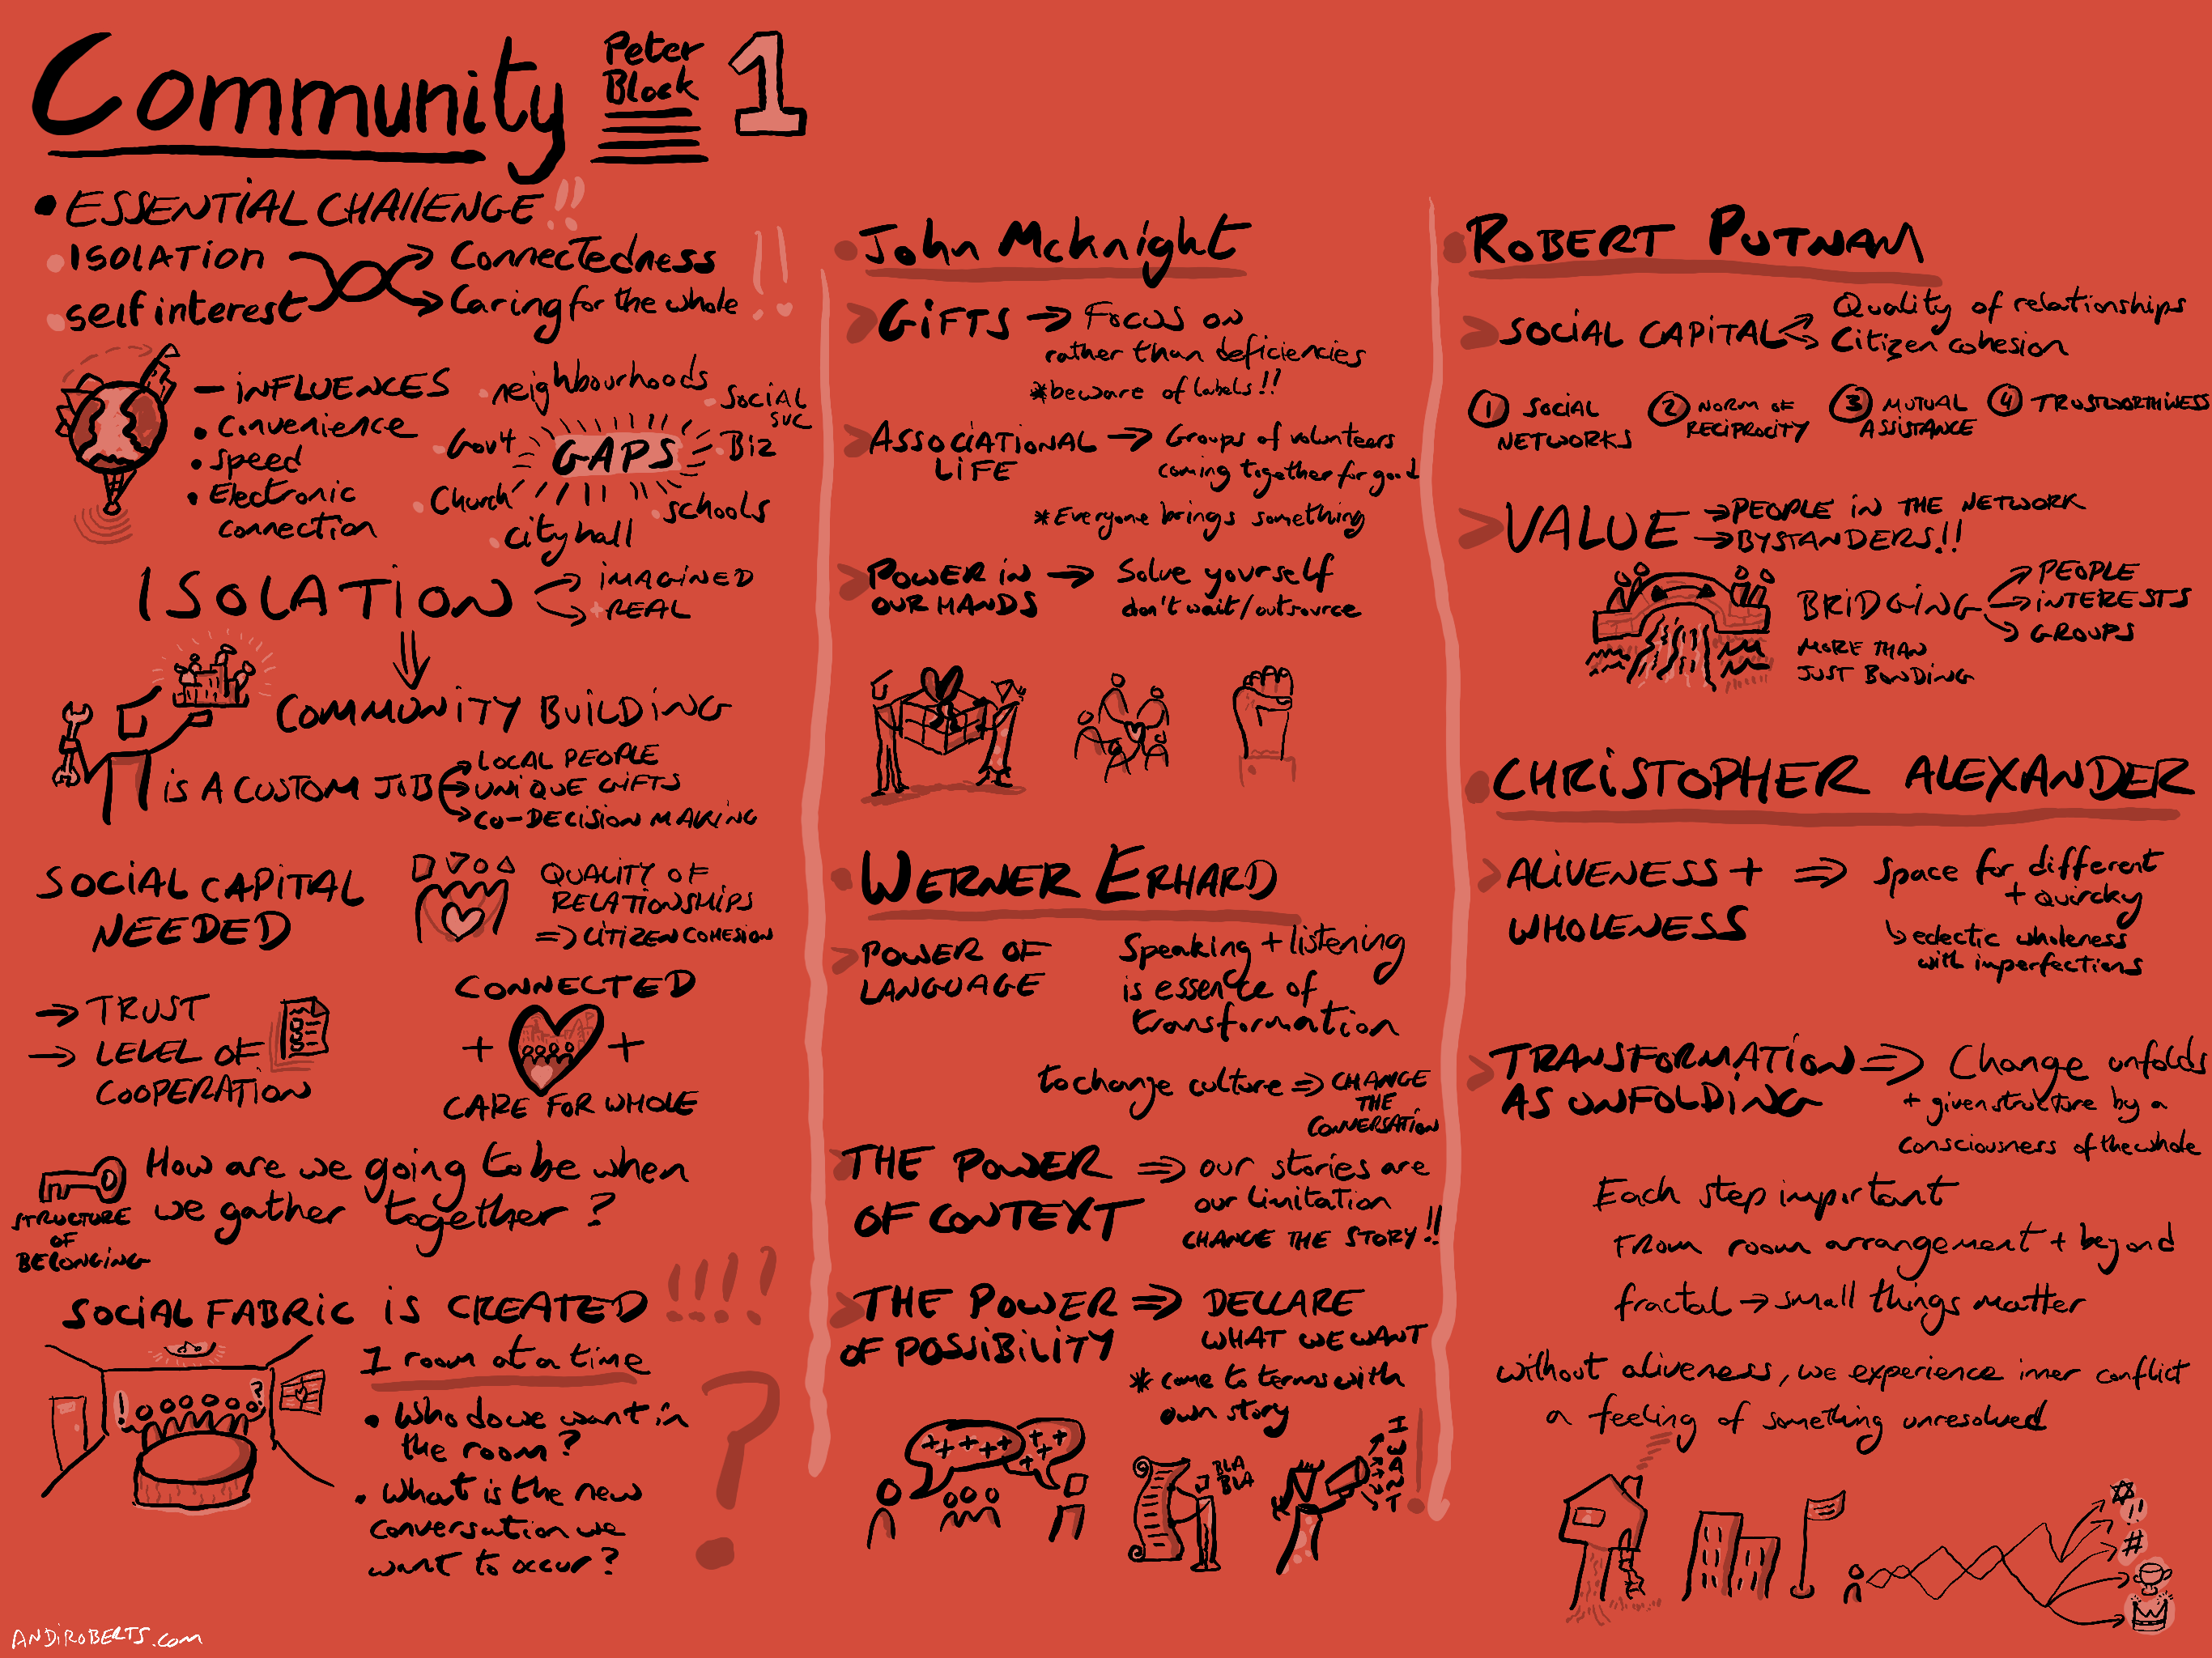 Community
Peter
Block
1
• ESSENTIAL CHAllENGE !!
• ISOLATION
Connectedness
• self interest
Caring for the whole
!!
– iNFLUENCES
• Convenience
• Speed
• Electronic
connection
neighbourhoods
Social
svc
Gov4
GAPS
Biz
Church
schools
city hall
ISOLATION
IMAGINED
REAL
COMMUNITY BUILDING
is A CUSTOM JOB
LOCAL PEOPLE
UNIQUE GIFTS
CO-DECISION MAKING
SOCIAL CAPITAL
NEEDED
QUALITY OF
RELATIONSHIPS
=> CITIZEN COHESION
→ TRUST
→ LEVEL OF
COOPERATION
CONNECTED
+ +
CARE FOR WHOLE
STRUCTURE
OF
BELONGING
How are we going to be when
we gather together?
SOCIAL FABRIC iS CREATED !!!!
1 room at a time
! ?
• Who do we want in
the room?
• What is the new
conversation we
want to occur?
?
ANDiROBERTS.com
• John Mcknight
> GiFTS → Focus on
rather than deficiencies
*beware of labels!!
> ASSOCIATIONAL
LiFE
→ Groups of volunteers
coming together for good
*Everyone brings something
> POWER iN
OUR HANDS
→ Solve yourself
don't wait/outsource
• WERNER ERHARD
> POWER OF
LANGUAGE
Speaking + listening
is essence of
transformation
to change culture => CHANGE
THE
CONVERSATION
> THE POWER
OF CONTEXT
=> our stories are
our limitation
CHANGE THE STORY!!
> THE POWER
OF POSSIBILITY
=> DECLARE
WHAT WE WANT
* come to terms with
own story
+++++ +++
BLA
BLA
I WANT
!
• ROBERT PUTNAM
> SOCIAL CAPITAL
Quality of relationships
Citizen cohesion
① SOCIAL
NETWORKS
② NORM OF
RECIPROCITY
③ MUTUAL
ASSISTANCE
④ TRUSTWORTHINESS
> VALUE
→ PEOPLE IN THE NETWORK
→ BYSTANDERS!!
BRiDGiNG
PEOPLE
iNTERESTS
GROUPS
MORE THAN
JUST BONDING
• CHRiSTOPHER ALEXANDER
> ALiVENESS +
WHOLENESS
=> Space for different
+ quircky
↳ eclectic wholeness
with imperfections
> TRANSFORMATION
AS UNFOLDiNG
=> Change unfolds
+ given structure by a
consciousness of the whole
Each step important
From room arrangement + beyond
fractal → small things matter
without aliveness, we experience inner conflict
a feeling of something unresolved
!!
#